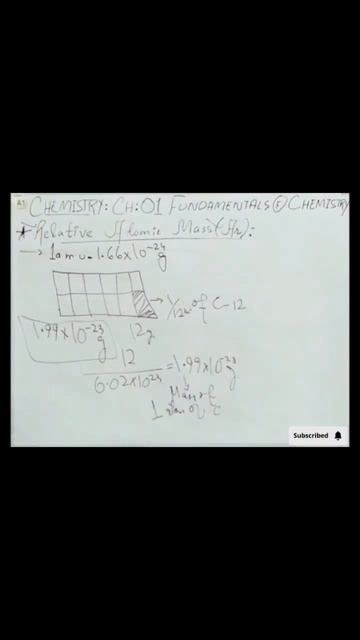 A1 CHEMISTRY: CH:01 FUNDAMENTALS OF CHEMISTRY
* Relative Atomic Mass (Ar):
→ 1amu = 1.66×10⁻²⁴ g
→ 1/12th of C-12
1.99×10⁻²³ g 12g
12
6.02×10²³ = 1.99×10⁻²³ g
Mass of
1 atom of C
Subscribed